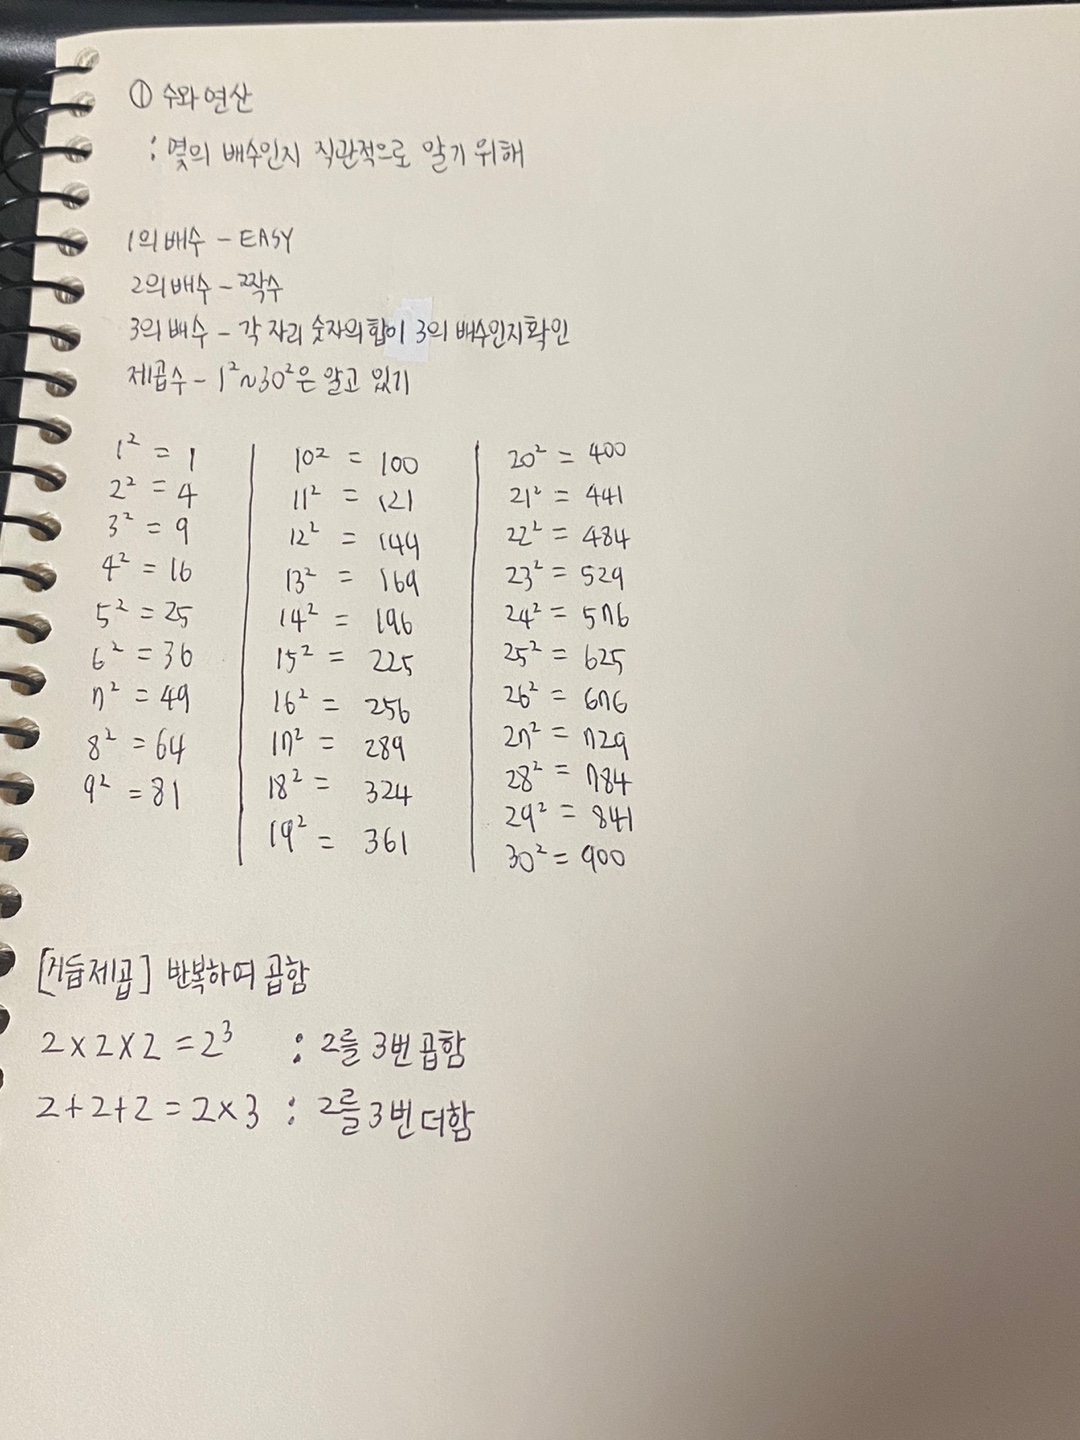 ① 수와 연산
: 몇의 배수인지 직관적으로 알기 위해
1의 배수 - EASY
2의 배수 - 짝수
3의 배수 - 각 자리 숫자의 합이 3의 배수인지 확인
제곱수 - 1²~30²은 알고 있기
1² = 1
2² = 4
3² = 9
4² = 16
5² = 25
6² = 36
7² = 49
8² = 64
9² = 81
10² = 100
11² = 121
12² = 144
13² = 169
14² = 196
15² = 225
16² = 256
17² = 289
18² = 324
19² = 361
20² = 400
21² = 441
22² = 484
23² = 529
24² = 576
25² = 625
26² = 676
27² = 729
28² = 784
29² = 841
30² = 900
[거듭제곱] 반복하여 곱함
2×2×2 = 2³ : 2를 3번 곱함
2+2+2 = 2×3 : 2를 3번 더함